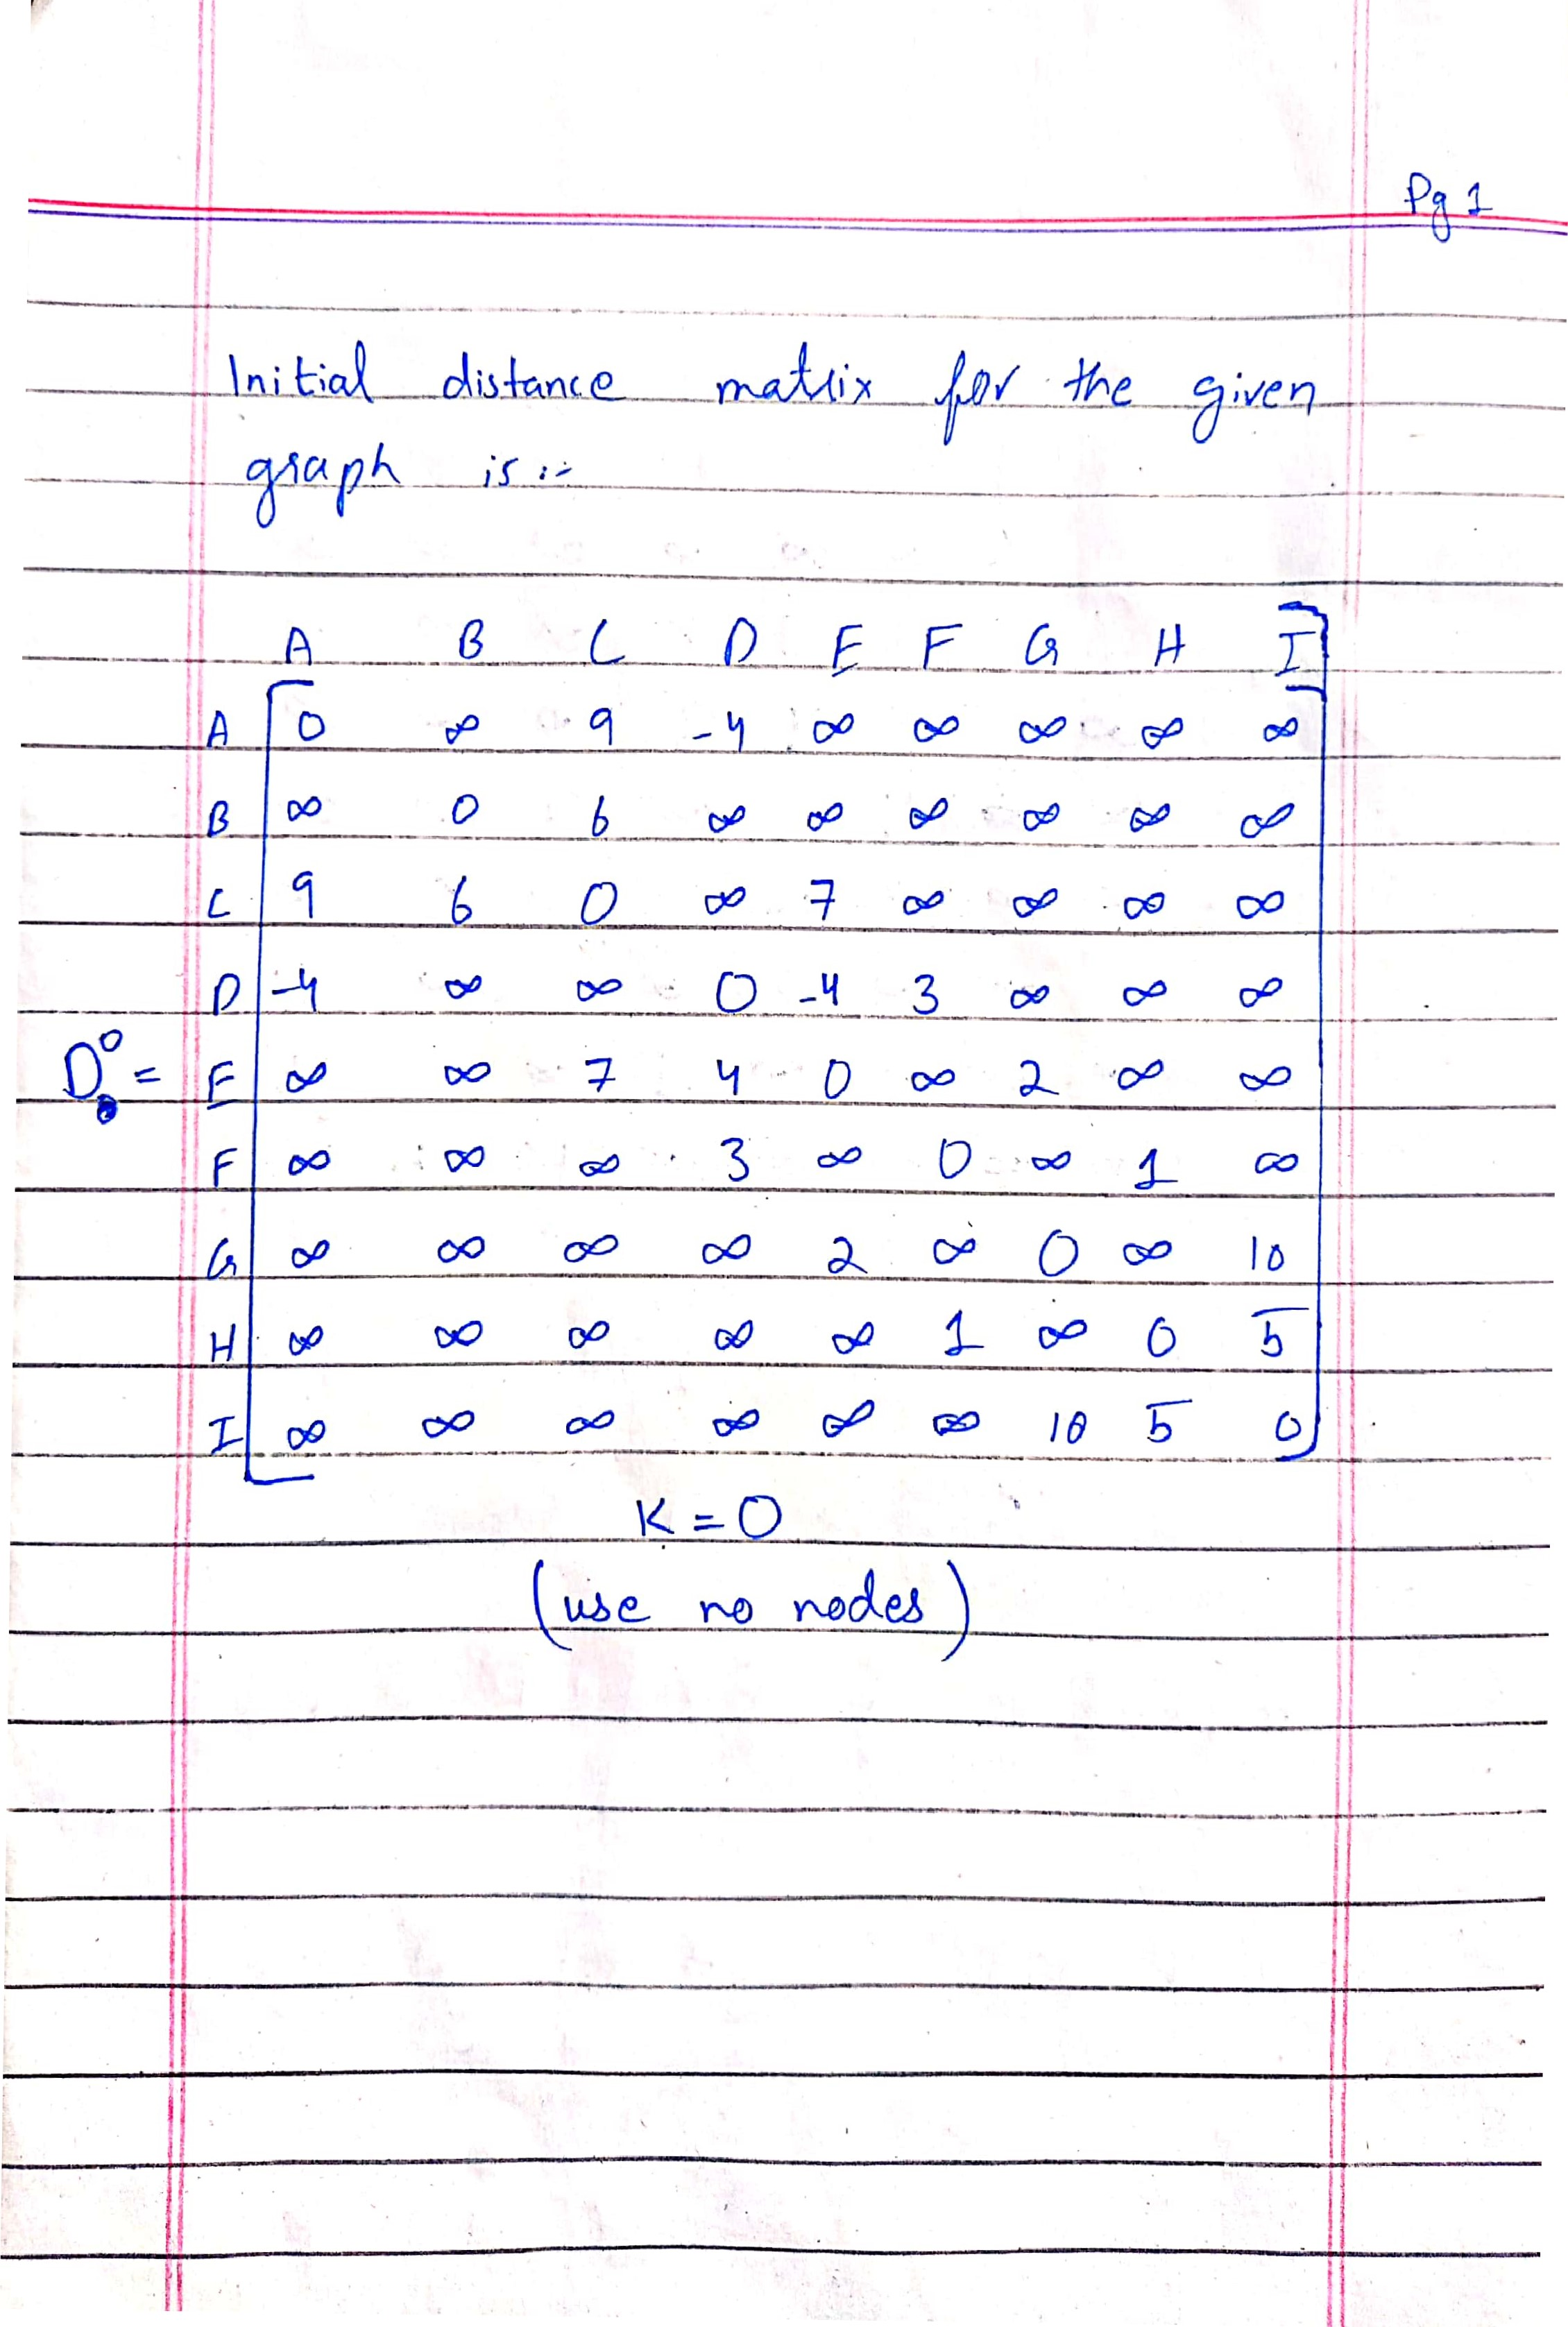 Pg 1
Initial distance matrix for the given
graph is :-
A B C D E F G H I
A 0 ∞ 9 -4 ∞ ∞ ∞ ∞ ∞
B ∞ 0 6 ∞ ∞ ∞ ∞ ∞ ∞
C 9 6 0 ∞ 7 ∞ ∞ ∞ ∞
D -4 ∞ ∞ 0 -4 3 ∞ ∞ ∞
D⁰ = E ∞ ∞ 7 4 0 ∞ 2 ∞ ∞
F ∞ ∞ ∞ 3 ∞ 0 ∞ 1 ∞
G ∞ ∞ ∞ ∞ 2 ∞ 0 ∞ 10
H ∞ ∞ ∞ ∞ ∞ 1 ∞ 0 5
I ∞ ∞ ∞ ∞ ∞ ∞ 10 5 0
K = 0
(use no nodes)